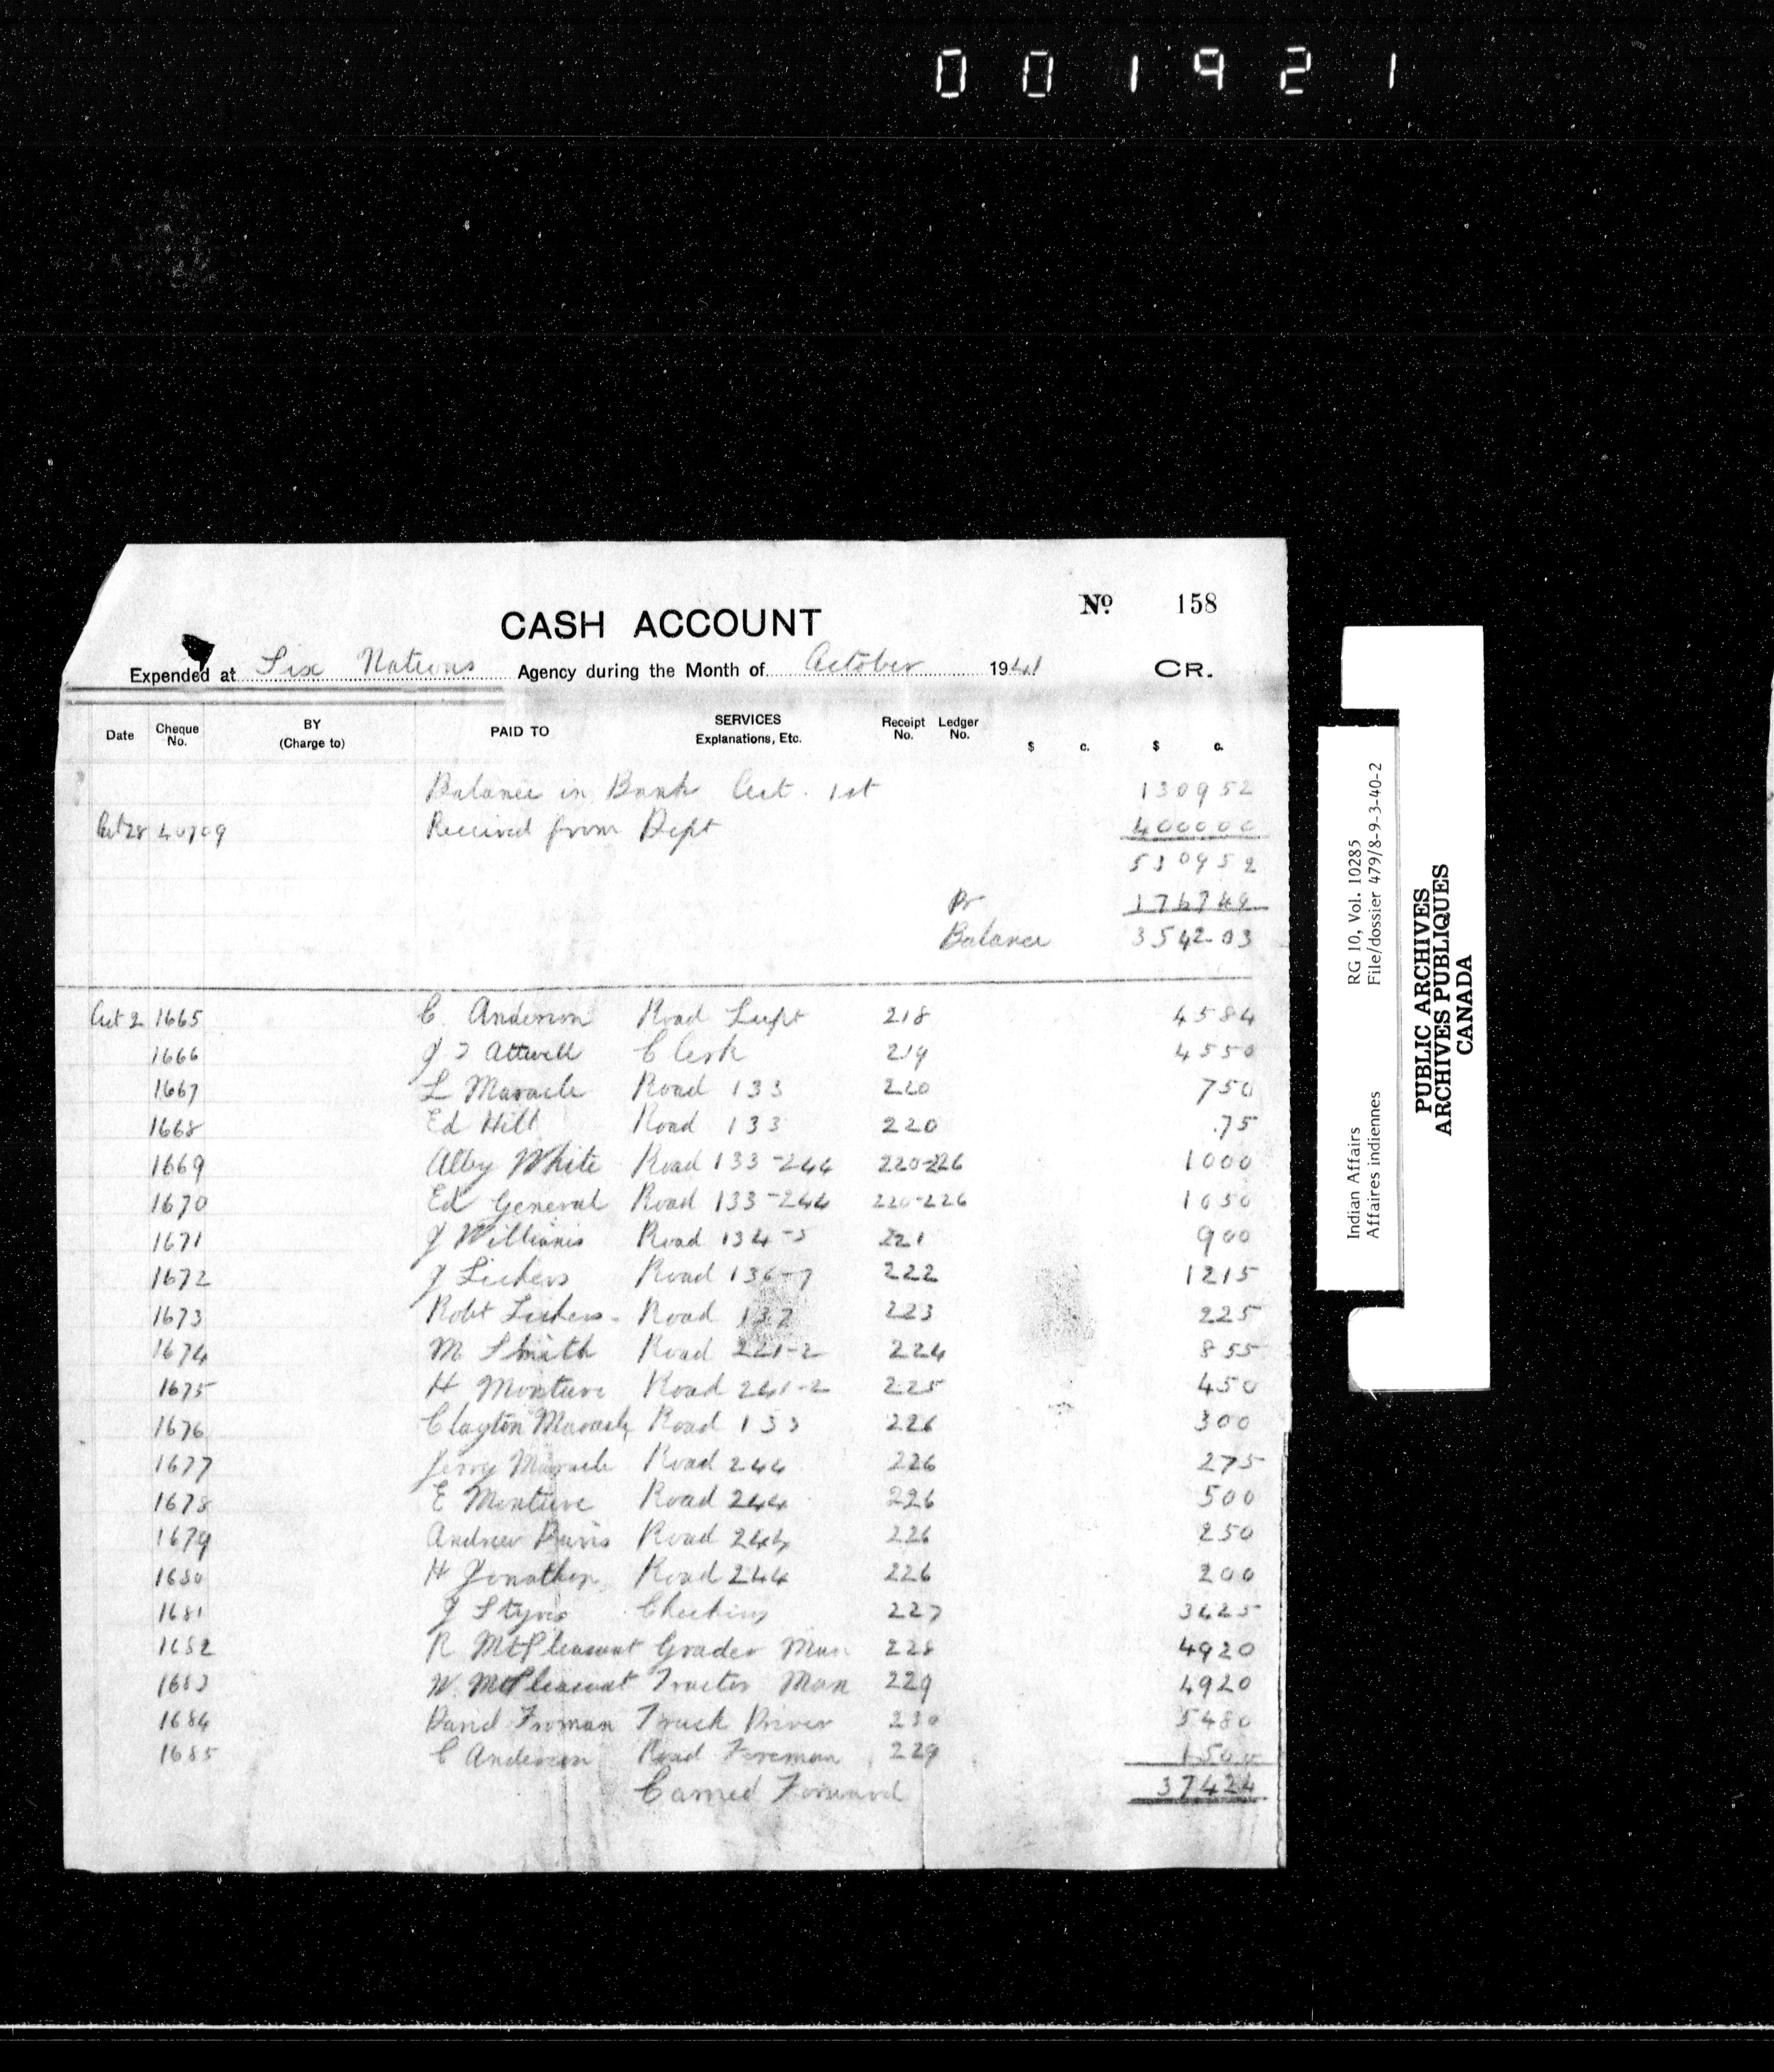 001921
No 158
CASH ACCOUNT
Expended at Six Nations Agency during the Month of October 1941 CR.
Date Cheque No. BY (Charge to) PAID TO SERVICES Explanations, Etc. Receipt No. Ledger No. $ c. $ c.
Balance in Bank Oct. 1st 130952
Oct 28 40709 Received from Dept 400000
530952
Dr 176749
Balance 3542.03
Oct 2 1665 C. Anderson Road Supt 218 4584
1666 J Attwell Clerk 219 4550
1667 L Maracle Road 133 220 750
1668 Ed Hill Road 133 220 .75
1669 Alby White Road 133-244 220-226 1000
1670 Ed General Road 133-244 220-226 1050
1671 J Williams Road 134-5 221 900
1672 J Lickers Road 136-7 222 1215
1673 Robt Lickers - Road 137 223 225
1674 M Smith Road 221-2 224 855
1675 H Monture Road 241-2 225 450
1676 Clayton Maracle Road 133 226 300
1677 Jerry Maracle Road 244 226 275
1678 E Monture Road 244 226 500
1679 Andrew Davis Road 244 226 250
1680 H Jonathan Road 244 226 200
1681 J Styres 227 3425
1682 R MtPleasant Grader Man 228 4920
1683 W. MtPleasant Tractor Man 229 4920
1684 David Froman Truck Driver 230 5480
1685 C Anderson Road Foreman 229 1500
Carried Forward 37424
Indian Affairs RG 10, Vol. 10285
Affaires indiennes File/dossier 479/8-9-3-40-2
PUBLIC ARCHIVES
ARCHIVES PUBLIQUES
CANADA